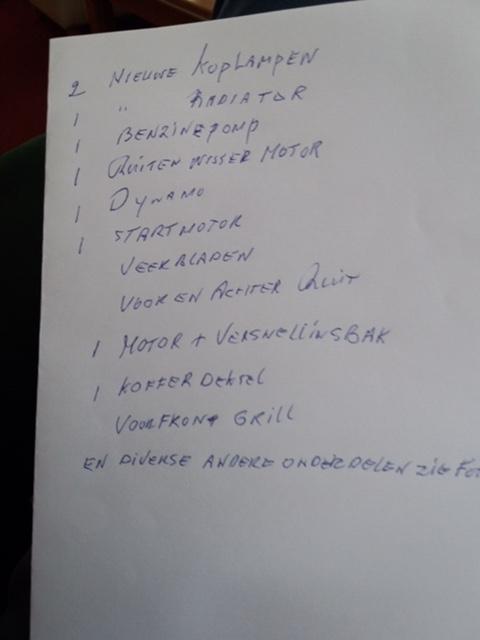 2 NIEUWE KOPLAMPEN
1 " RADIATOR
1 BENZINEPOMP
1 RUITEN WISSER MOTOR
1 DYNAMO
1 STARTMOTOR
VEERBLADEN
VOOR EN ACHTER RUIT
1 MOTOR + VERSNELLINSBAK
1 KOFFER DEKSEL
VOORFRONT GRILL
EN DIVERSE ANDERE ONDERDELEN ZIE